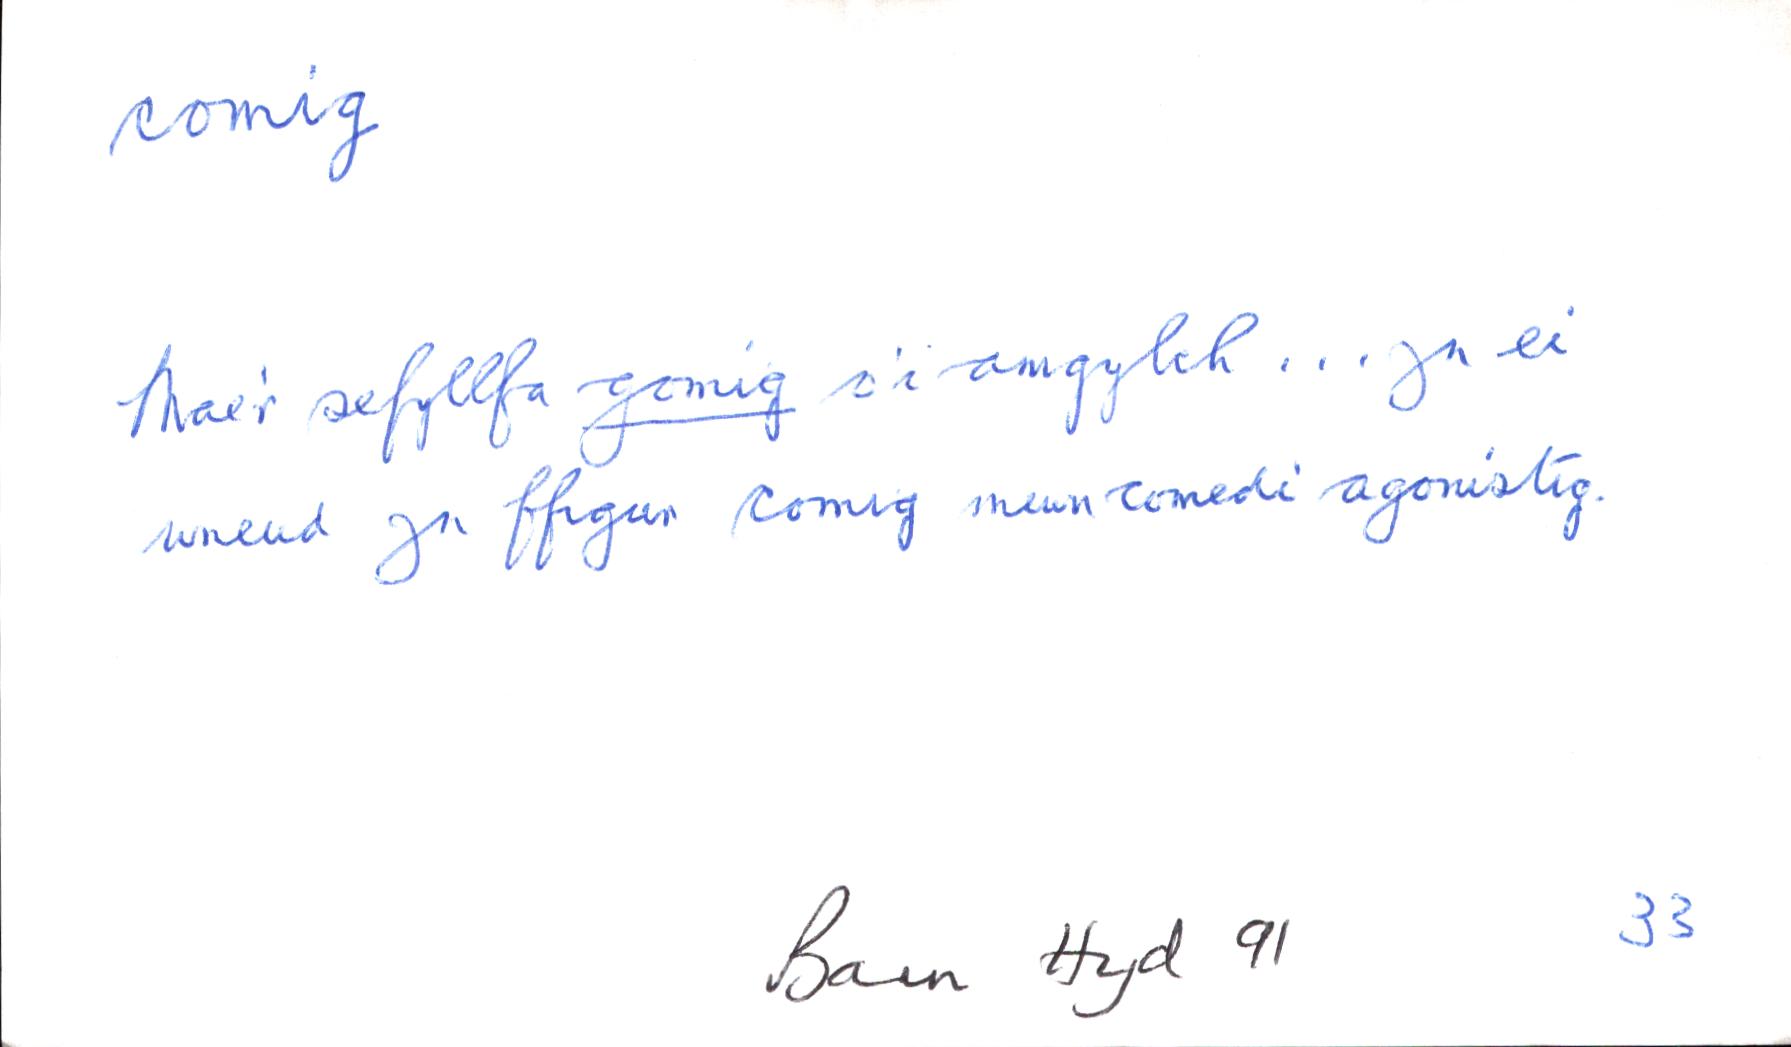 comig
Mae'r sefyllfa gomig o'i amgylch ... yn ei
wneud yn ffigur comig mewn comedi agonistig.
Barn Hyd 91 33